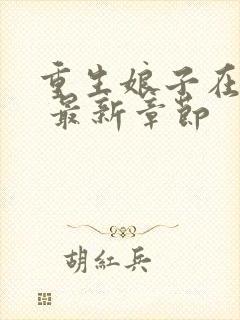 重生娘子在
最新章節
胡紅兵